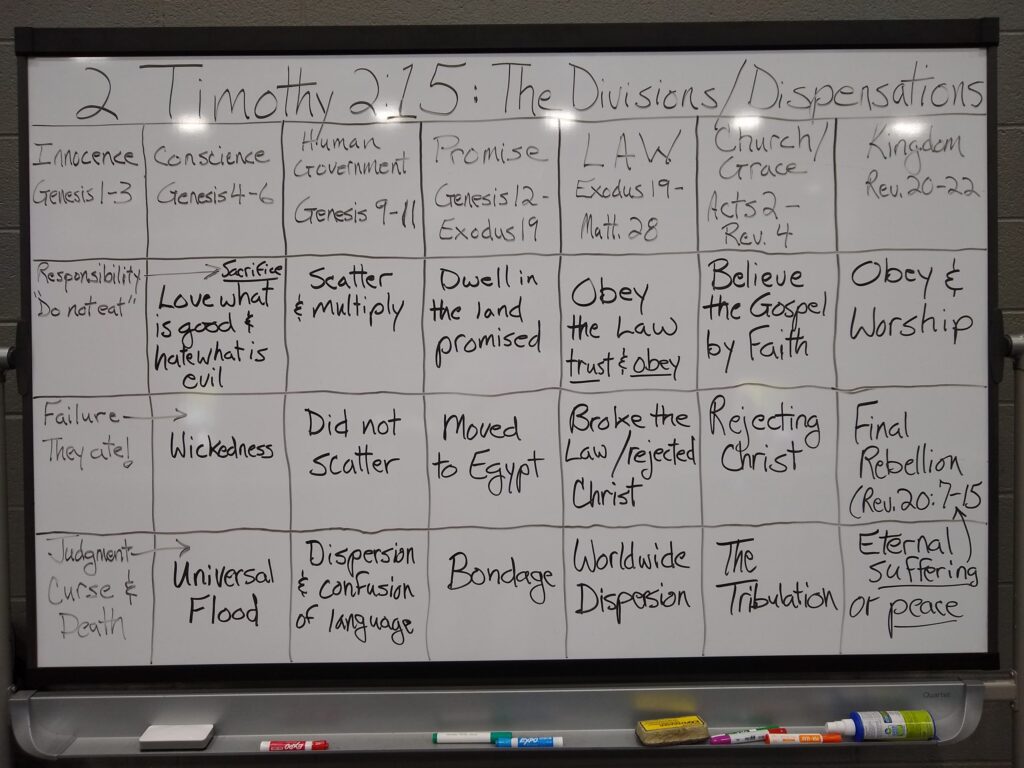 2 Timothy 2:15: The Divisions/Dispensations
Innocence
Genesis 1-3
Conscience
Genesis 4-6
Human
Government
Genesis 9-11
Promise
Genesis 12-
Exodus 19
LAW
Exodus 19-
Matt. 28
Church/
Grace
Acts 2-
Rev. 4
Kingdom
Rev. 20-22
Responsibility
"Do not eat"
Sacrifice
Love what
is good &
hate what is
evil
Scatter
& multiply
Dwell in
the land
promised
Obey
the Law
trust & obey
Believe
the Gospel
by Faith
Obey &
Worship
Failure
They ate!
Wickedness
Did not
scatter
Moved
to Egypt
Broke the
Law/rejected
Christ
Rejecting
Christ
Final
Rebellion
(Rev. 20:7-15
Judgment
Curse &
Death
Universal
Flood
Dispersion
& confusion
of language
Bondage
Worldwide
Dispersion
The
Tribulation
Eternal
suffering
or peace
Quartet
EXPO
EXPO